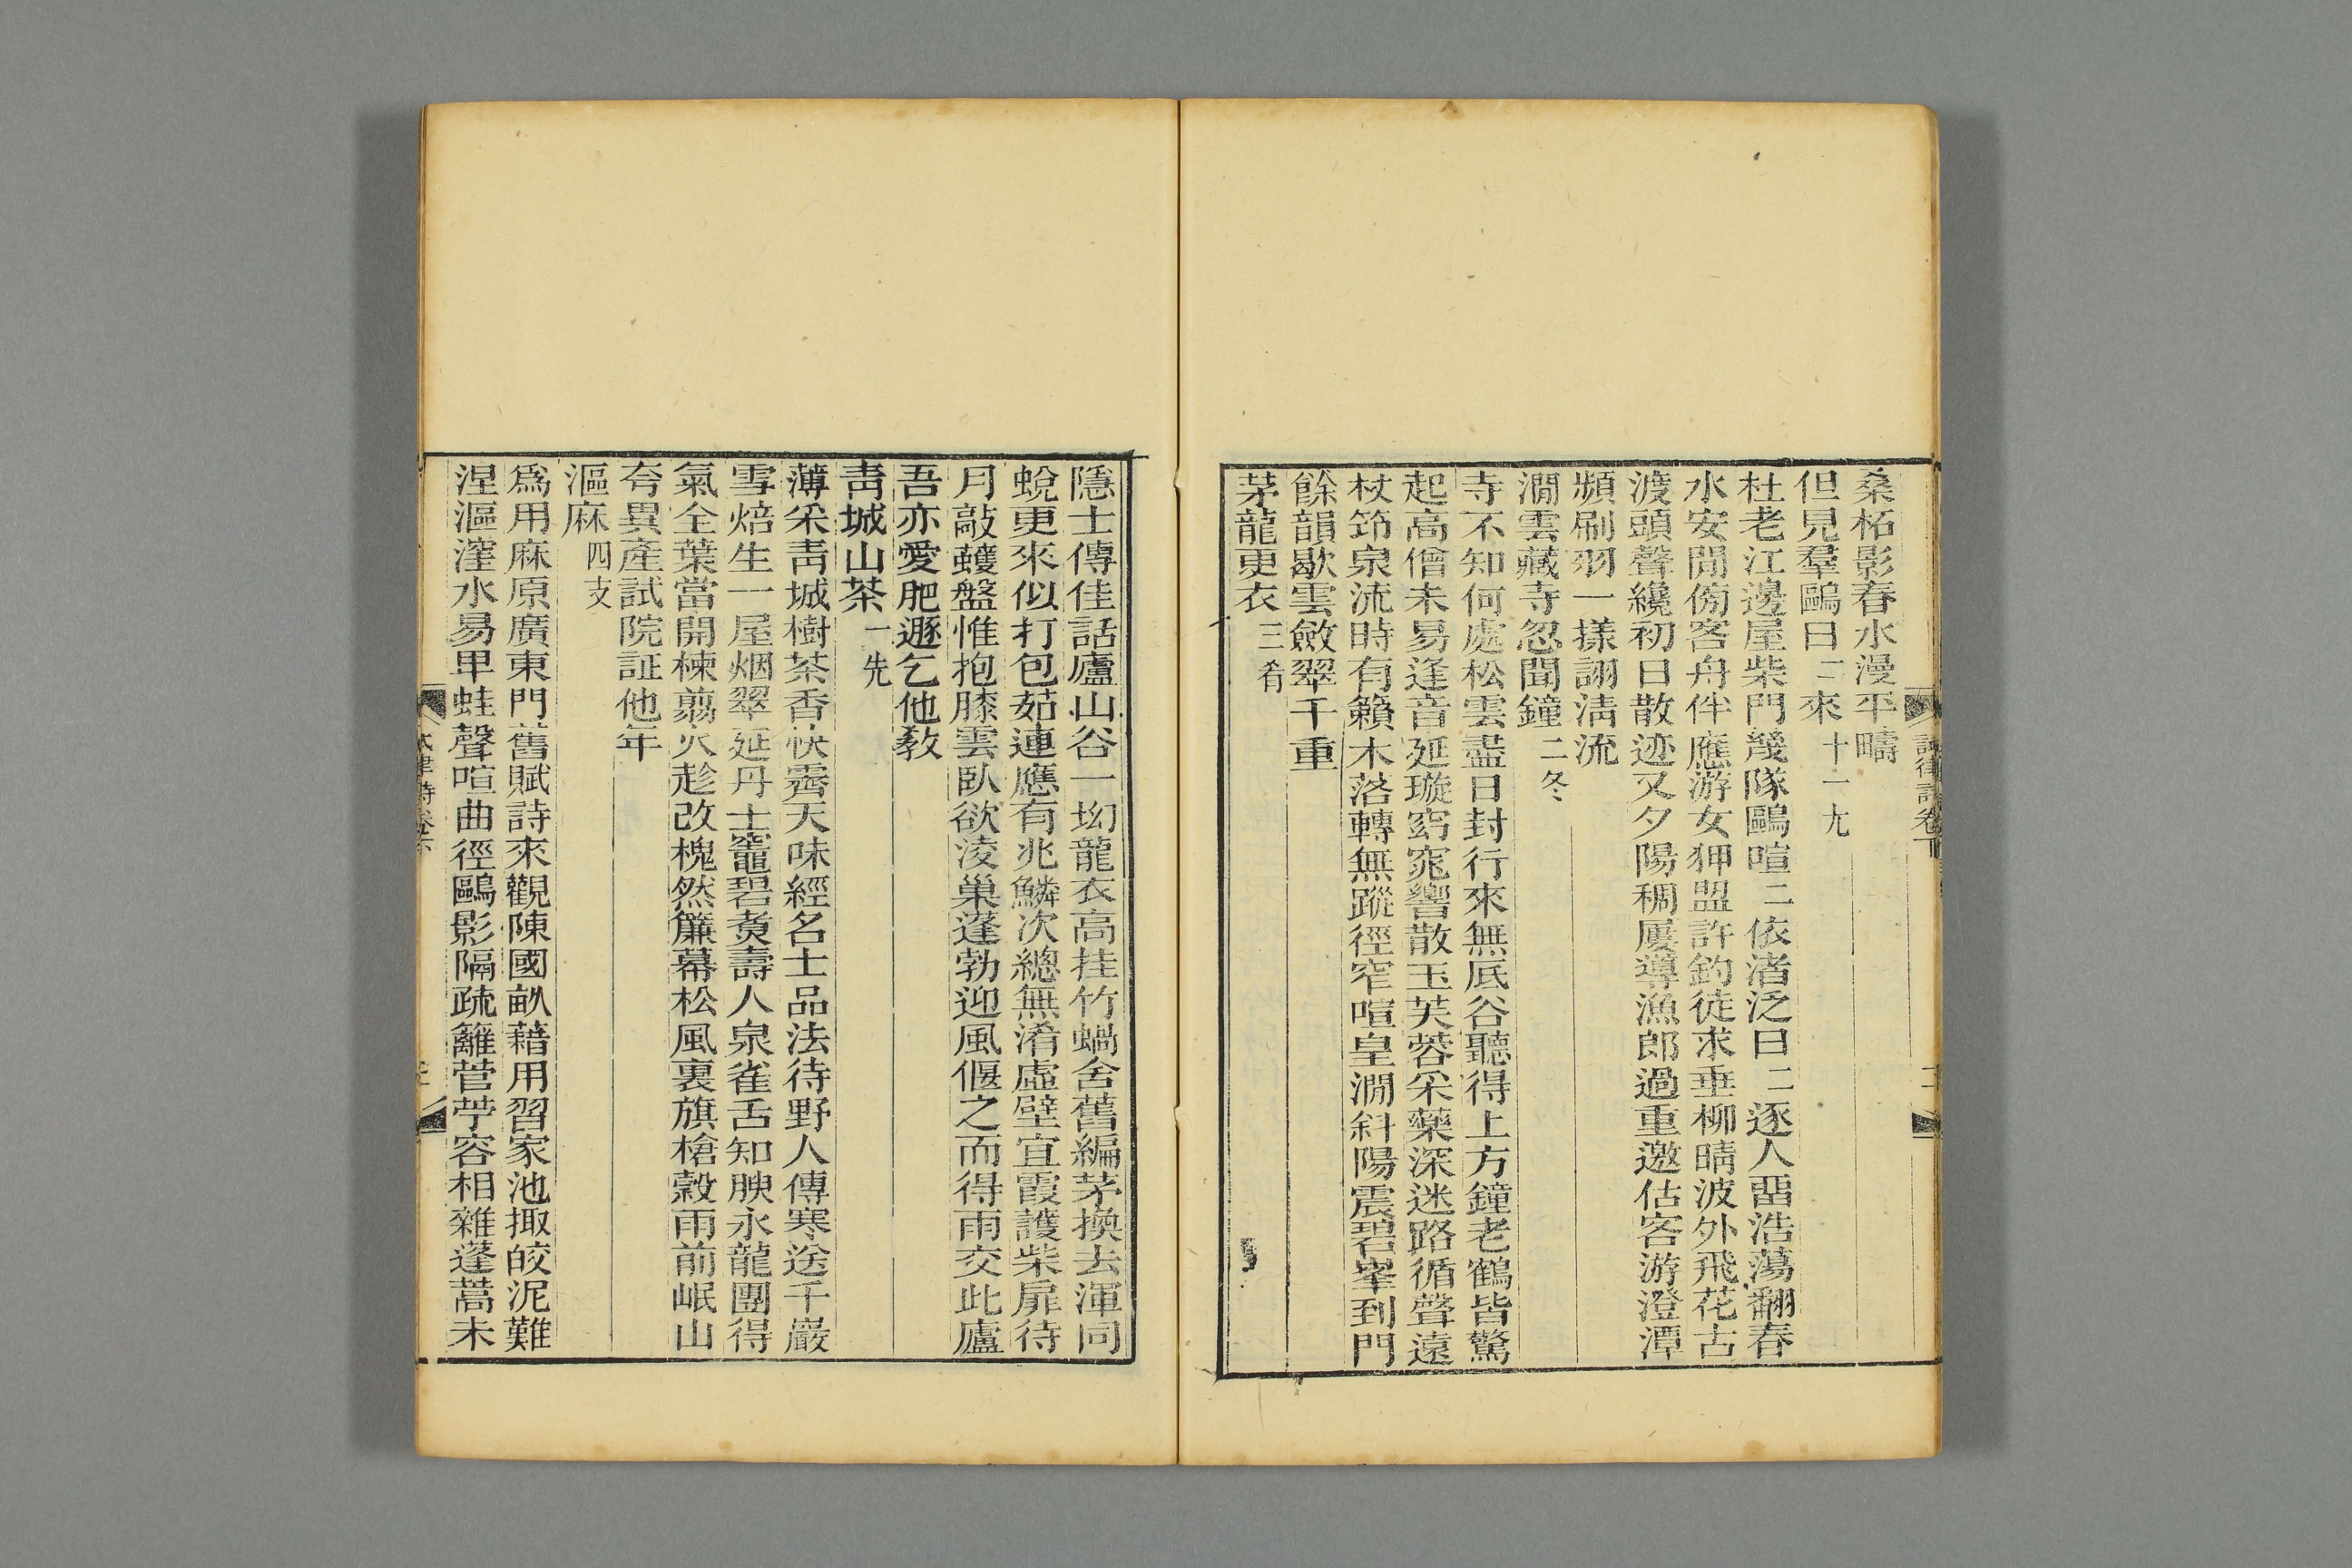 桑柘影春水漫平疇
但見羣鷗日〻來十一尤
杜老江邊屋柴門幾隊鷗喧〻依渚泛日〻逐人畱浩蕩翻春
水安閒傍客舟伴應游女狎盟許釣徒求垂柳晴波外飛花古
渡頭聲纔初日散迹又夕陽稠屢導漁郎過重邀估客游澄潭
頻刷羽一㨾詡淸流
澗雲藏寺忽聞鐘二冬
寺不知何處松雲盡日封行來無底谷聽得上方鐘老鶴皆驚
起高僧未易逢音延璇窈窕響散玉芙蓉采藥深迷路循聲遠
杖筇泉流時有籟木落轉無蹤徑窄喧皇澗斜陽震碧峯到門
餘韻歇雲斂翠千重
茅龍更衣三肴
隱士傳佳話廬山谷一㘭龍衣高挂竹蝸舍舊編茅換去渾同
蛻更來似打包茹連應有兆鱗次總無淆虛壁宜霞護柴扉待
月敲蠖盤惟抱膝雲臥欲淩巢蓬勃迎風偃之而得雨交此廬
吾亦愛肥遯乞他敎
靑城山茶一先
薄采靑城樹茶香快霽天味經名士品法待野人傳寒送千巖
雪焙生一屋烟翠延丹士竈碧煑壽人泉雀舌知腴永龍團得
氣全葉當開楝翦火趁改槐然簾幕松風裏旗槍穀雨前岷山
夸異產試院証他年
漚麻四支
爲用麻原廣東門舊賦詩來觀陳國畝藉用習家池掫皎泥難
涅漚漥水易甲蛙聲喧曲徑鷗影隔疏籬菅苧容相雜蓬蒿未